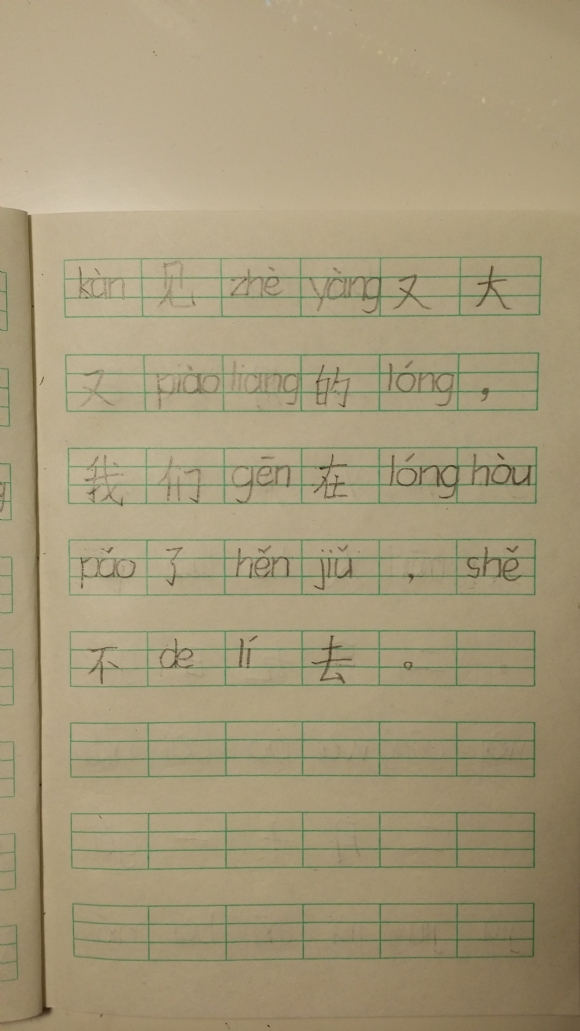 kàn 见 zhè yàng 又 大
又 piào liang 的 lóng ，
我 们 gēn 在 lóng hòu
pǎo 了 hěn jiǔ ， shě
不 de lí 去 。